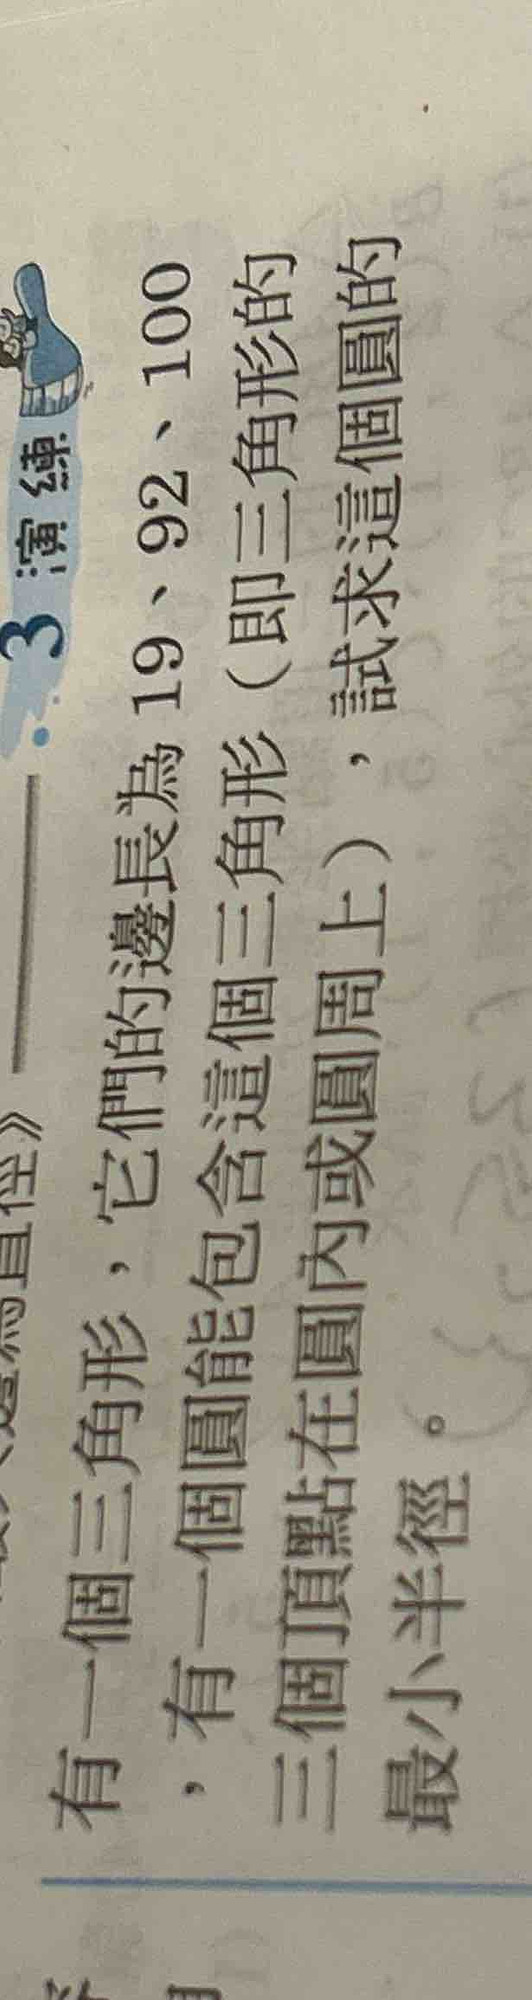 3 演練
有一個三角形，它們的邊長為 19、92、100
，有一個圓能包含這個三角形（即三角形的
三個頂點在圓內或圓周上），試求這個圓的
最小半徑。